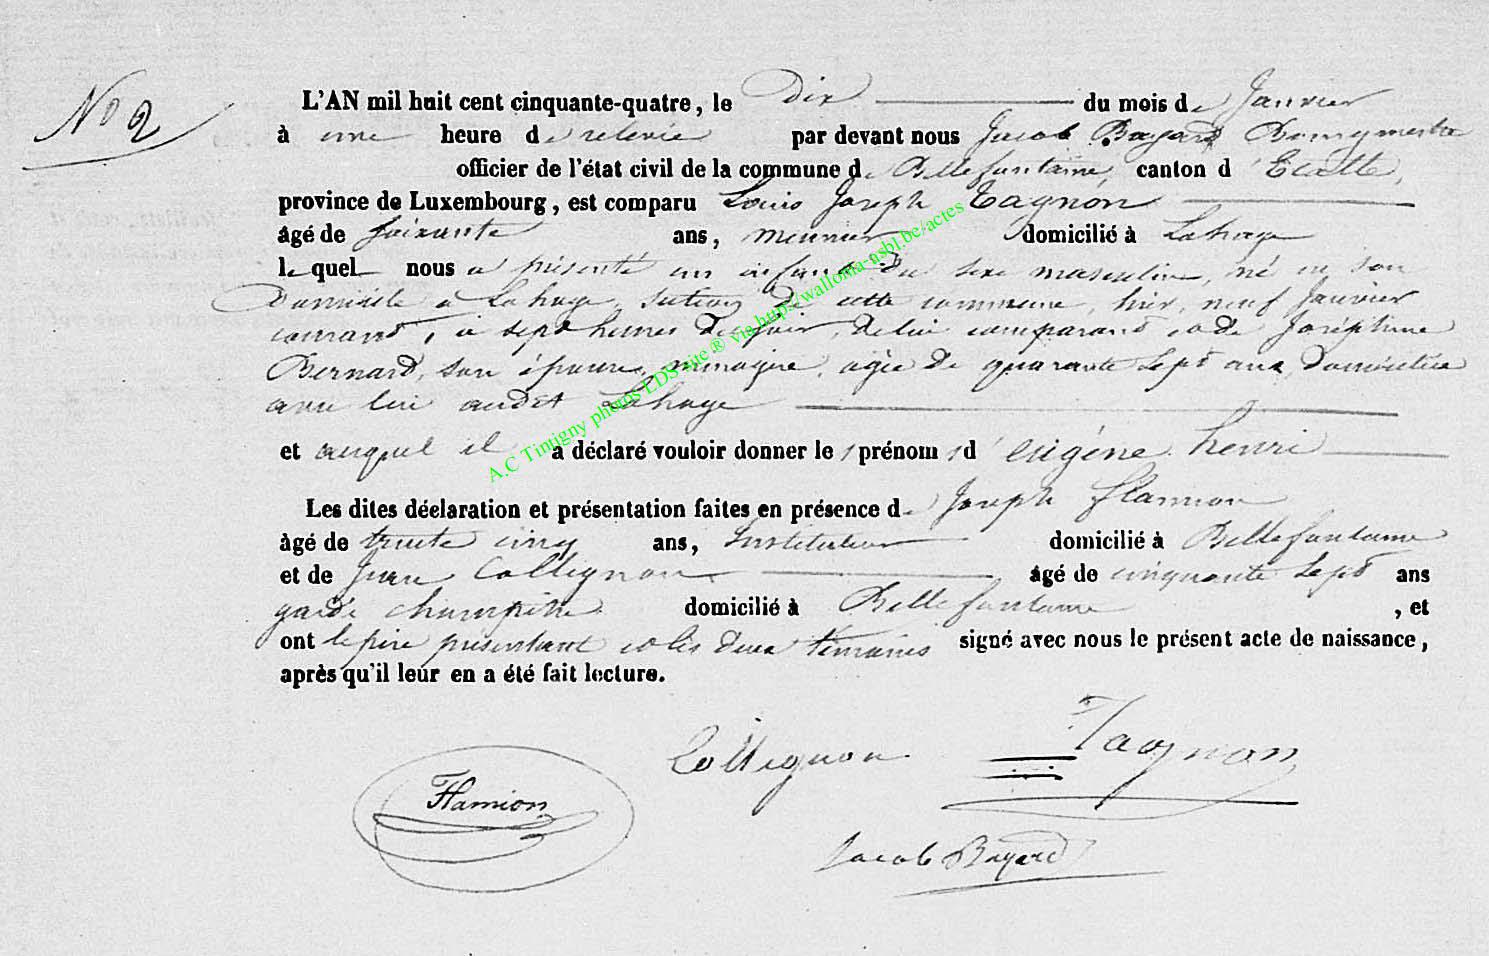 No 2
L'AN mil huit cent cinquante-quatre, le Dix du mois de Janvier
à une heure de relevée par devant nous Jacob Bayard Bourgmestre
officier de l'état civil de la commune de Bellefontaine, canton d'Etalle,
province de Luxembourg, est comparu Louis Joseph Tagnon
âgé de soixante ans, meunier domicilié à Lahage
lequel nous a présenté un enfant du sexe masculin, né en son
Domicile à Lahage, section de cette commune, hier, neuf Janvier
courant, à sept heures du soir, de lui comparant et de Joséphine
Bernard, son épouse, ménagère, agée de quarante sept ans, domiciliée
avec lui audit Lahage
et auquel il a déclaré vouloir donner les prénoms d'eugène henri
Les dites déclaration et présentation faites en présence de Joseph flamion
âgé de trente cinq ans, Instituteur domicilié à Bellefontaine
et de Jean Collignon âgé de cinquante sept ans
garde champêtre domicilié à Bellefontaine, et
ont le père présentant et les deux témoins signé avec nous le présent acte de naissance,
après qu'il leur en a été fait lecture.
Flamion
Collignon
Tagnon
Jacob Bayard
A.C Tintigny photos LDS site ® via http://wallonia-asbl.be/actes